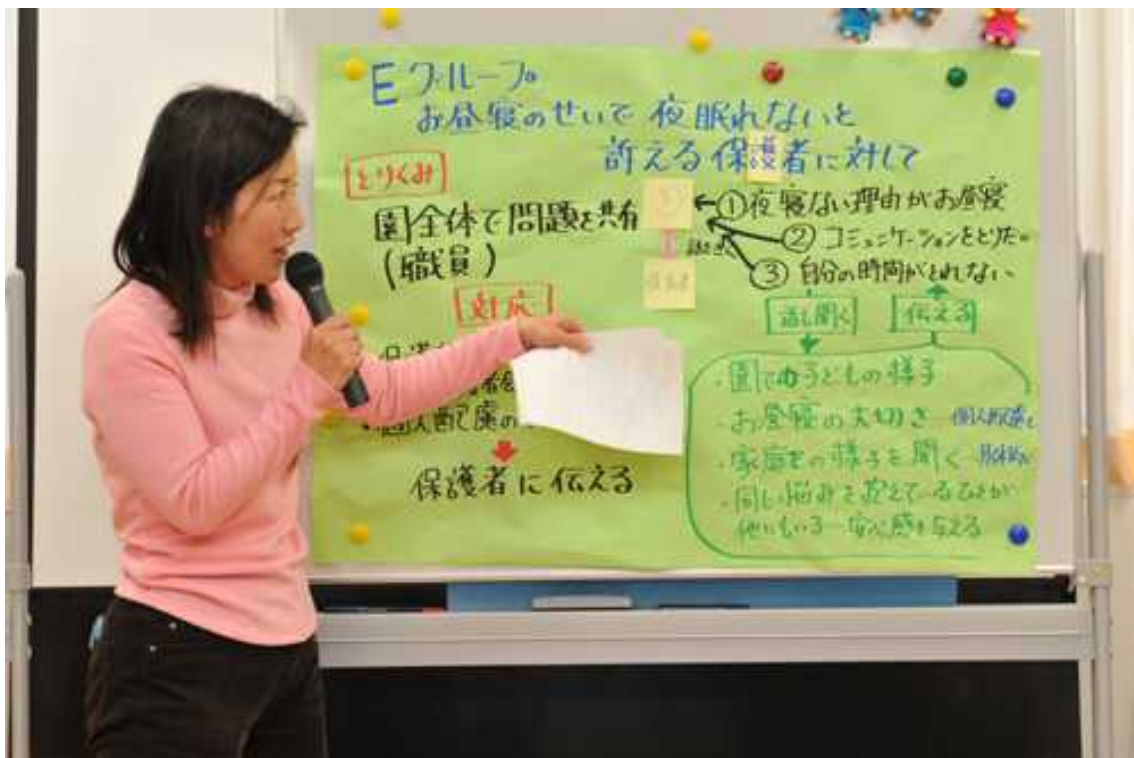 Eグループ
お昼寝のせいで夜眠れないと
訴える保護者に対して
とりくみ
園全体で問題を共有
(職員)
対応
個人面談
保護者に伝える
①夜寝ない理由がお昼寝
②コミュニケーションをとりたい
③自分の時間がとれない
話し聞く
伝える
・園での子どもの様子
・お昼寝の大切さ
・家庭での様子を聞く
・同じ悩みを抱えている
他にもいる→安心感を与える